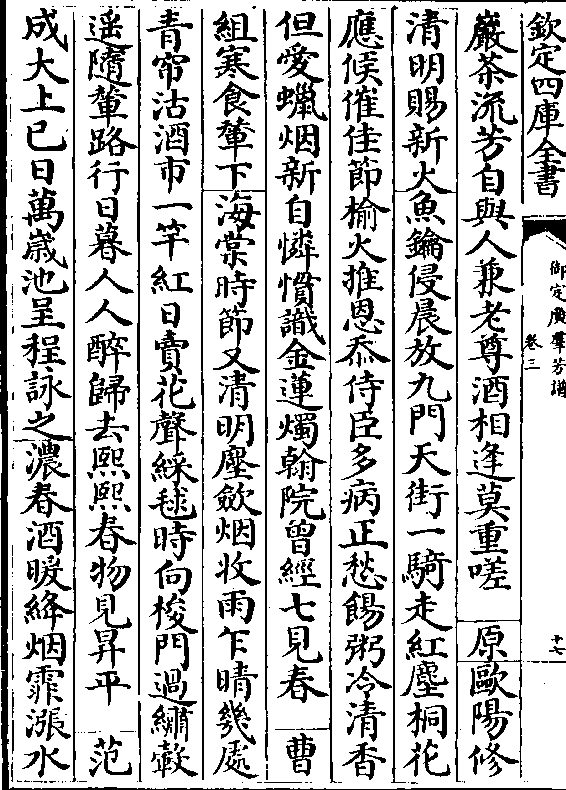 欽定四庫全書
御定廣羣芳譜
卷三
十七
巖茶流芳自與人兼老尊酒相逢莫重嗟 原歐陽修
清明賜新火魚鑰侵晨放九門天街一騎走紅塵桐花
應候催佳節榆火推恩忝侍臣多病正愁餳粥冷清香
但愛蠟烟新自憐慣識金蓮燭翰院曾經七見春 曹
組寒食輦下海棠時節又清明塵歛烟收雨乍晴幾處
青帘沽酒市一竿紅日賣花聲綵毬時向梭門過繡轂
遥隨輦路行日暮人人醉歸去熙熙春物見昇平 范
成大上巳日萬歲池呈程詠之濃春酒暖絳烟霏漲水